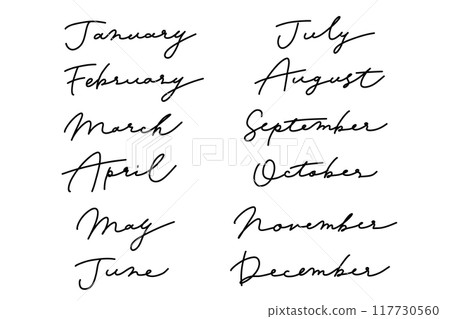 January
February
March
April
May
June
July
August
September
October
November
December
PIXTA
pixta.jp - 117730560